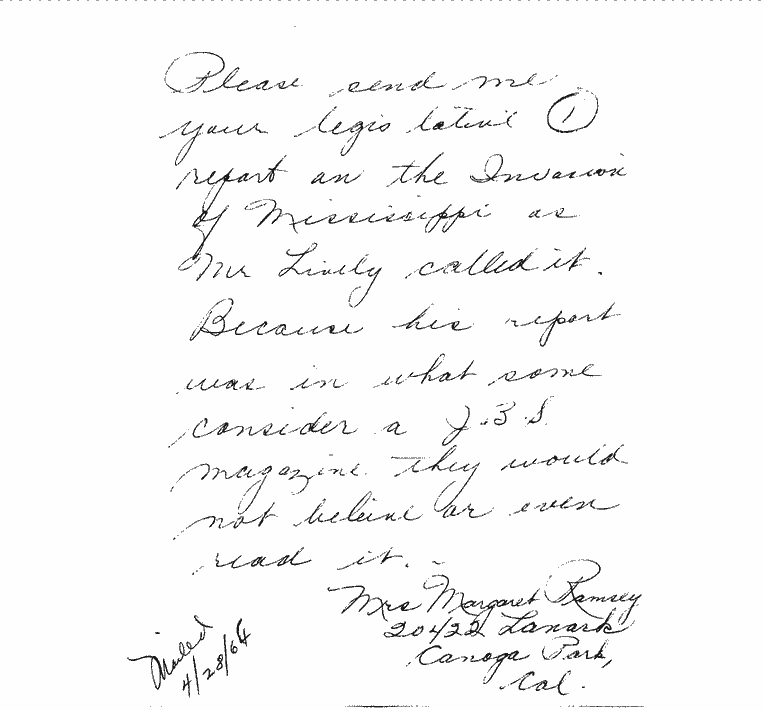 Please send me
your legislative ①
report on the Invasion
of Mississippi as
Mr Lively called it.
Because his report
was in what some
consider a J.B.S.
magazine. they would
not beleive or even
read it. -
Mrs Margaret Ramsey
20422 Lanark
Canoga Park,
Cal.
Mailed
4/28/64